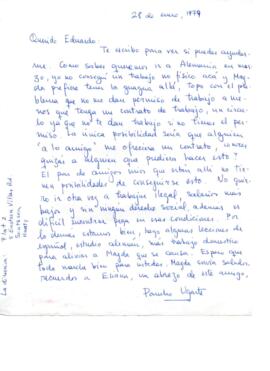 28 de enero, 1979
Querido Eduardo:
Te escribo para ver si puedes ayudar-
me. Como sabes queremos ir a Alemania en mar-
zo, yo no conseguí un trabajo no físico acá y Mag-
da prefiere tener la guagua allá. Topo con el pro-
blema que no me dan permiso de trabajo a me-
nos que tenga un contrato de trabajo, un círcu-
lo ya que no te dan trabajo si no tienes el per-
miso. La única posibilidad sería que alguien
"a lo amigo" me ofreciera un contrato, ¿conoces
quizás a alguien que pudiera hacer esto?
El par de amigos míos que están allá no tie-
nen posibilidades de conseguirse esto. No quie-
ro ir otra vez a trabajar ilegal, salarios más
bajos y sin ningún derecho social, además es
difícil encontrar pega en esas condiciones. Por
lo demás estamos bien, hago algunas lecciones de
español, estudio alemán, más trabajo doméstico
para aliviar a Magda que se cansa. Espero que
todo marche bien para ustedes. Magda envía saludos,
recuerdos a Eliana, un abrazo de este amigo,
Pancho Ugarte
La dirección:
Flat 2